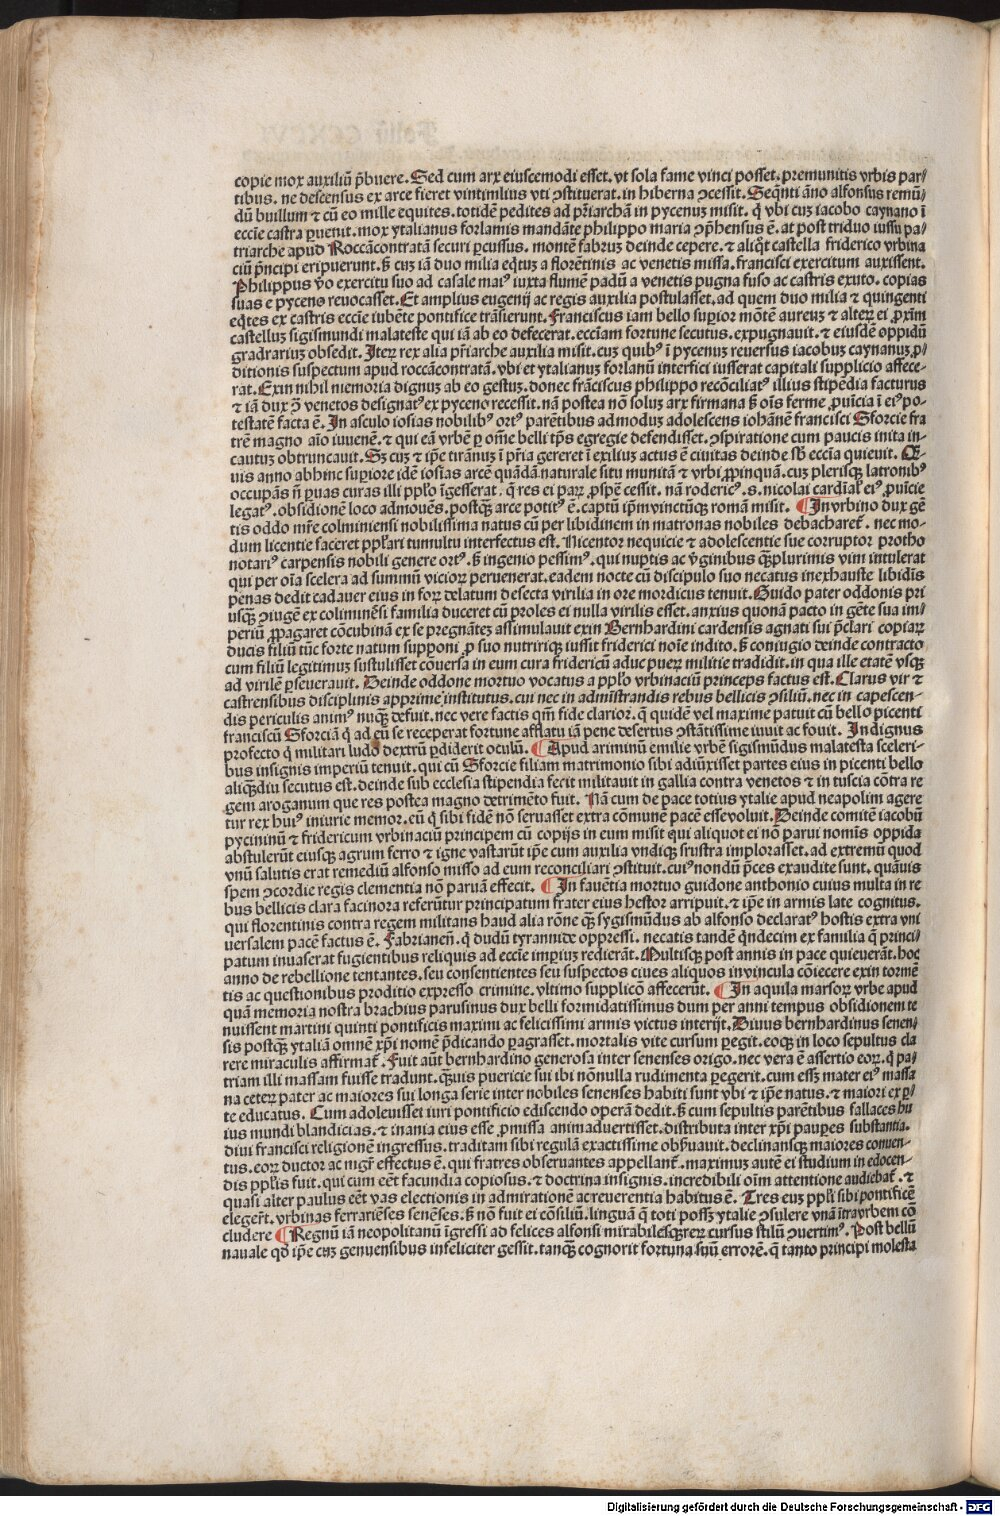 copie mox auxiliū p̄buere. Sed cum arx eiuscemodi esset. vt sola fame vinci posset. premunitis vrbis par⸗
tibus. ne descensus ex arce fieret vintimlius vti ꝯstituerat. in hiberna ꝯcessit. Seq̄nti āno alfonsus remū⸗
dū buillum ⁊ cū eo mille equites. totidē pedites ad pr̄iarchā in pycenuꝫ misit. q̄ vbi cuꝫ iacobo caynano ī
eccīe castra ꝑuenit. mox ytalianus forlamis mandāte philippo maria ꝯp̄hensus ē. at post triduo iussu pa⸗
triarche apud Roccācontratā securi ꝑcussus. montē fabruꝫ deinde cepere. ⁊ aliq̄t castella friderico vrbina
ciū p̄ncipi eripuerunt. sꝫ cuꝫ iā duo milia eq̄tuꝫ a florētinis ac venetis missa. francisci exercitum auxissent.
Philippus v̄o exercitu suo ad casale maiꝰ iuxta flumē padū a venetis pugna fuso ac castris exuto. copias
suas e pyceno reuocasset. Et amplius eugenij ac regis auxilia postulasset. ad quem duo milia ⁊ quingenti
eq̄tes ex castris eccīe iubēte pontifice trāsierunt. Franciscus iam bello suꝑior mōtē aureuꝫ ⁊ alterꝫ ei ꝓxīm
castelluꝫ sigismundi malateste qui iā ab eo defecerat. eccīam fortune secutus. expugnauit. ⁊ eiusdē oppidū
gradrariuꝫ obsedit. Iterꝫ rex alia pr̄iarche auxilia misit. cuꝫ quibꝰ ī pycenuꝫ reuersus iacobuꝫ caynanuꝫ ꝓ⸗
ditionis suspectum apud roccācontratā. vbi et ytalianuꝫ forlanū interfici iusserat capitali supplicio affece⸗
rat. Exin nihil memoria dignuꝫ ab eo gestuꝫ. donec frāciscus philippo recōciliatꝰ illius stipēdia facturus
⁊ iā dux ꝓ̄ venetos designatꝰ ex pyceno recessit. nā postea nō soluꝫ arx firmana sꝫ oīs ferme ꝓuīcia ī eiꝰ po⸗
testatē facta ē. In asculo iosias nobilibꝰ ortꝰ parētibus admoduꝫ adolescens iohānē francisci Sforcie fra
trē magno aīo iuuenē. ⁊ qui eā vrbē ꝑ om̄e belli tp̄s egregie defendisset. ꝯspiratione cum paucis inita in⸗
cautuꝫ obtruncauit. Sꝫ cuꝫ ⁊ ip̄e tirānuꝫ ī pr̄ia gereret ī exiliuꝫ actus ē ciuitas deinde sb̄ eccīa quieuit. Q̄⸗
uis anno abhinc suꝑiore idē iosīas arcē quādā naturale situ munitā ⁊ vrbi ꝓpinquā. cuꝫ plerisqꝫ latronibꝰ
occupās n̄ ꝑuas curas illi ppl̄o īgesserat. q̄ res ei paꝝ ꝓspē cessit. nā rodericꝰ .s. nicolai cardīal̄ eiꝰ ꝓuīcie
legatꝰ. obsidionē loco admouēs. postqꝫ arce potitꝰ ē. captū ip̄m vinctūqꝫ romā misit. ¶In vrbino dux gē
tis oddo mr̄e colminiensi nobilissima natus cū per libidinem in matronas nobiles debacharet̄. nec mo⸗
dum licentie faceret ppl̄ari tumultu interfectus est. Nicentor nequicie ⁊ adolescentie sue corruptor protho
notariꝰ carpensis nobili genere ortꝰ. sꝫ ingenio pessimꝰ. qui nuptis ac v̄ginibus qꝫplurimis vim intulerat
qui per oīa scelera ad summū vicioꝝ peruenerat. eadem nocte cū discipulo suo necatus inexhauste libidīs
penas dedit cadauer eius in foꝝ delatum desecta virilia in ore mordicus tenuit. Guido pater oddonis pri
usqꝫ ꝯiugē ex colimnēsi familia duceret cū proles ei nulla virilis esset. anxius quonā pacto in gēte sua im⸗
periū ꝓpagaret cōcubinā ex se pregnātēꝫ assimulauit exin Bernhardini cardensis agnati sui p̄clari copiaꝝ
ducis filiū tūc forte natum supponi ꝓ suo nutririqꝫ iussit friderici noīe indito. sꝫ coniugio deinde contracto
cum filiū legitimuꝫ sustulisset cōuersa in eum cura fridericū aduc pueꝝ militie tradidit. in qua ille etatē vsqꝫ
ad virilē ꝑseuerauit. Deinde oddone mortuo vocatus a ppl̄o vrbinaciū princeps factus est. Clarus vir ⁊
castrensibus disciplinis apprime institutus. cui nec in admīstrandis rebus bellicis ꝯsiliū. nec in capescen⸗
dis periculis animꝰ nuqꝫ defuit. nec vere factis qm̄ fide clarior. q̄ quidē vel maxime patuit cū bello picenti
franciscū Sforciā q̄ ad eū se receperat fortune afflatu iā pene desertus ꝯstātissime iuuit ac fouit. Indignus
profecto q̄ militari ludo dextrū ꝑdiderit oculū. ¶Apud ariminū emilie vrbē sigismūdus malatesta sceleri⸗
bus insignis imperiū tenuit. qui cū Sforcie filiam matrimonio sibi adiūxisset partes eius in picenti bello
aliqꝫdiu secutus est. deinde sub ecclesia stipendia fecit militauit in gallia contra venetos ⁊ in tuscia cōtra re
gem aroganum que res postea magno detrimēto fuit. Nā cum de pace totius ytalie apud neapolim agere
tur rex huiꝰ iniurie memor. cū q̄ sibi fidē nō seruasset extra cōmunē pacē esse voluit. Deinde comitē iacobū
pycininū ⁊ fridericum vrbinaciū principem cū copijs in eum misit qui aliquot ei nō parui nomīs oppida
abstulerūt eiusqꝫ agrum ferro ⁊ igne vastarūt ip̄e cum auxilia vndiqꝫ frustra implorasset. ad extremū quod
vnū salutis erat remediū alfonso misso ad eum reconciliari ꝯstituit. cuiꝰ nondū p̄ces exaudite sunt. quāuis
spem ꝯcordie regis clementia nō paruā effecit. ¶In fauētia mortuo guidone anthonio cuius multa in re
bus bellicis clara facinora referūtur principatum frater eius hestor arripuit. ⁊ ip̄e in armis late cognitus.
qui florentinis contra regem militans haud alia rōne qꝫ sygismūdus ab alfonso declaratꝰ hostis extra vni
uersalem pacē factus ē. Fabrianeñ. q̄ dudū tyrannide oppressi. necatis tandē q̄ndecim ex familia q̄ princi⸗
patum inuaserat fugientibus reliquis ad eccīe imꝑius redierāt. Multisqꝫ post annis in pace quieuerāt. hoc
anno de rebellione tentantes. seu consentientes seu suspectos ciues aliquos in vincula cōiecere exin tormē
tis ac questionibus proditio expresso crimine. vltimo supplicō affecerūt. ¶In aquila marsoꝝ vrbe apud
quā memoria nostra brachius parusinus dux belli formidatissimus dum per anni tempus obsidionem te
nuissent martini quinti pontificis maximi ac felicissimi armis victus interijt. Diuus bernhardinus senen⸗
sis postqꝫ ytaliā omnē xp̄i nomē p̄dicando ꝑagrasset. mortalis vite cursum ꝑegit. eoqꝫ in loco sepultus cla
rere miraculis affirmat̄. Fuit aūt bernhardino generosa inter senenses origo. nec vera ē assertio eoꝝ. q̄ pa⸗
triam illi massam fuisse tradunt. qꝫuis puericie sui ibi nōnulla rudimenta ꝑegerit. cum essꝫ mater eiꝰ massa
na ceteꝝ pater ac maiores sui longa serie inter nobiles senenses habiti sunt vbi ⁊ ip̄e natus. ⁊ maiori ex ꝑ⸗
te educatus. Cum adoleuisset iuri pontificio ediscendo operā dedit. sꝫ cum sepultis parētibus fallaces hu
ius mundi blandicias. ⁊ inania eius esse ꝓmissa animaduertisset. distributa inter xp̄i pauꝑes substantia.
diui francisci religionē ingressus. traditam sibi regulā exactissime obs̄uauit. declinansqꝫ maiores conuen⸗
tus. eoꝝ ductor ac mgr̄ effectus ē. qui fratres obseruantes appellant̄. maximuꝫ autē ei studium in edocen⸗
dis ppl̄is fuit. qui cum eēt facundia copiosus. ⁊ doctrina insignis. incredibili oīm attentione audiebat̄. ⁊
quasi alter paulus eēt vas electionis in admirationē ac reuerentia habitus ē. Tres euꝫ ppl̄i sibi pontificē
elegeꝝt. vrbinas ferrariēses senēses. sꝫ nō fuit ei cōsiliū. linguā q̄ toti possꝫ ytalie ꝯsulere vnā ītra vrbem cō
cludere ¶Regnū iā neopolitanū īgressi ad felices alfonsi mirabilesqꝫ reꝝ cursus stilū ꝯuertimꝰ. Post bellū
nauale qd̄ ip̄e cuꝫ genuensibus infeliciter gessit. tanqꝫ cognorit fortuna suū errorē. q̄ tanto principi molesta
Digitalisierung gefördert durch die Deutsche Forschungsgemeinschaft - DFG